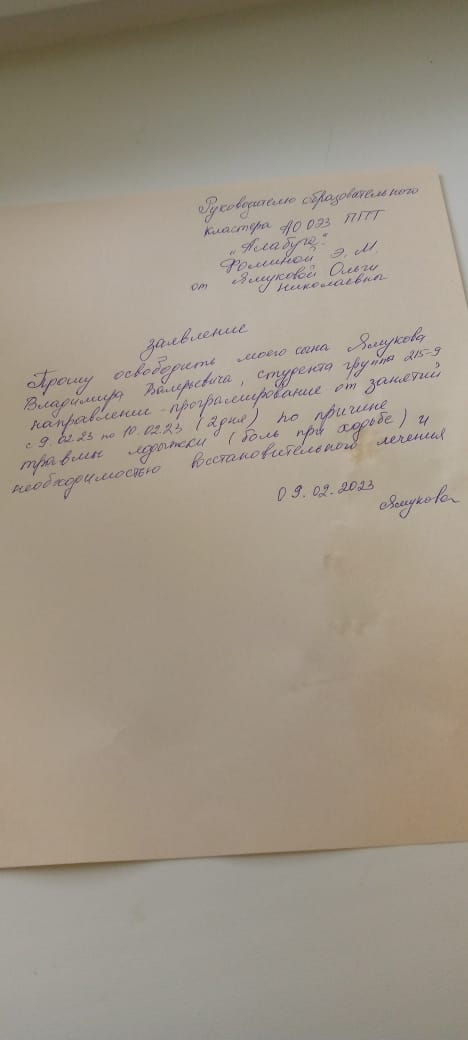 Руководителю образовательного
кластера АО ОЭЗ ППТ
„Алабуга".
Фоминой Э. М.
от Ямуковой Ольги
Николаевны
заявление
Прошу освободить моего сына Ямукова
Владимира Валерьевича, студента группы 215-9
направлении-програмирование от занятий
с 9.02.23 по 10.02.23 (2 дня) по причине
травмы лодыжки (боль при ходьбе) и
необходимостью восстановительного лечения
09.02.2023
Ямукова